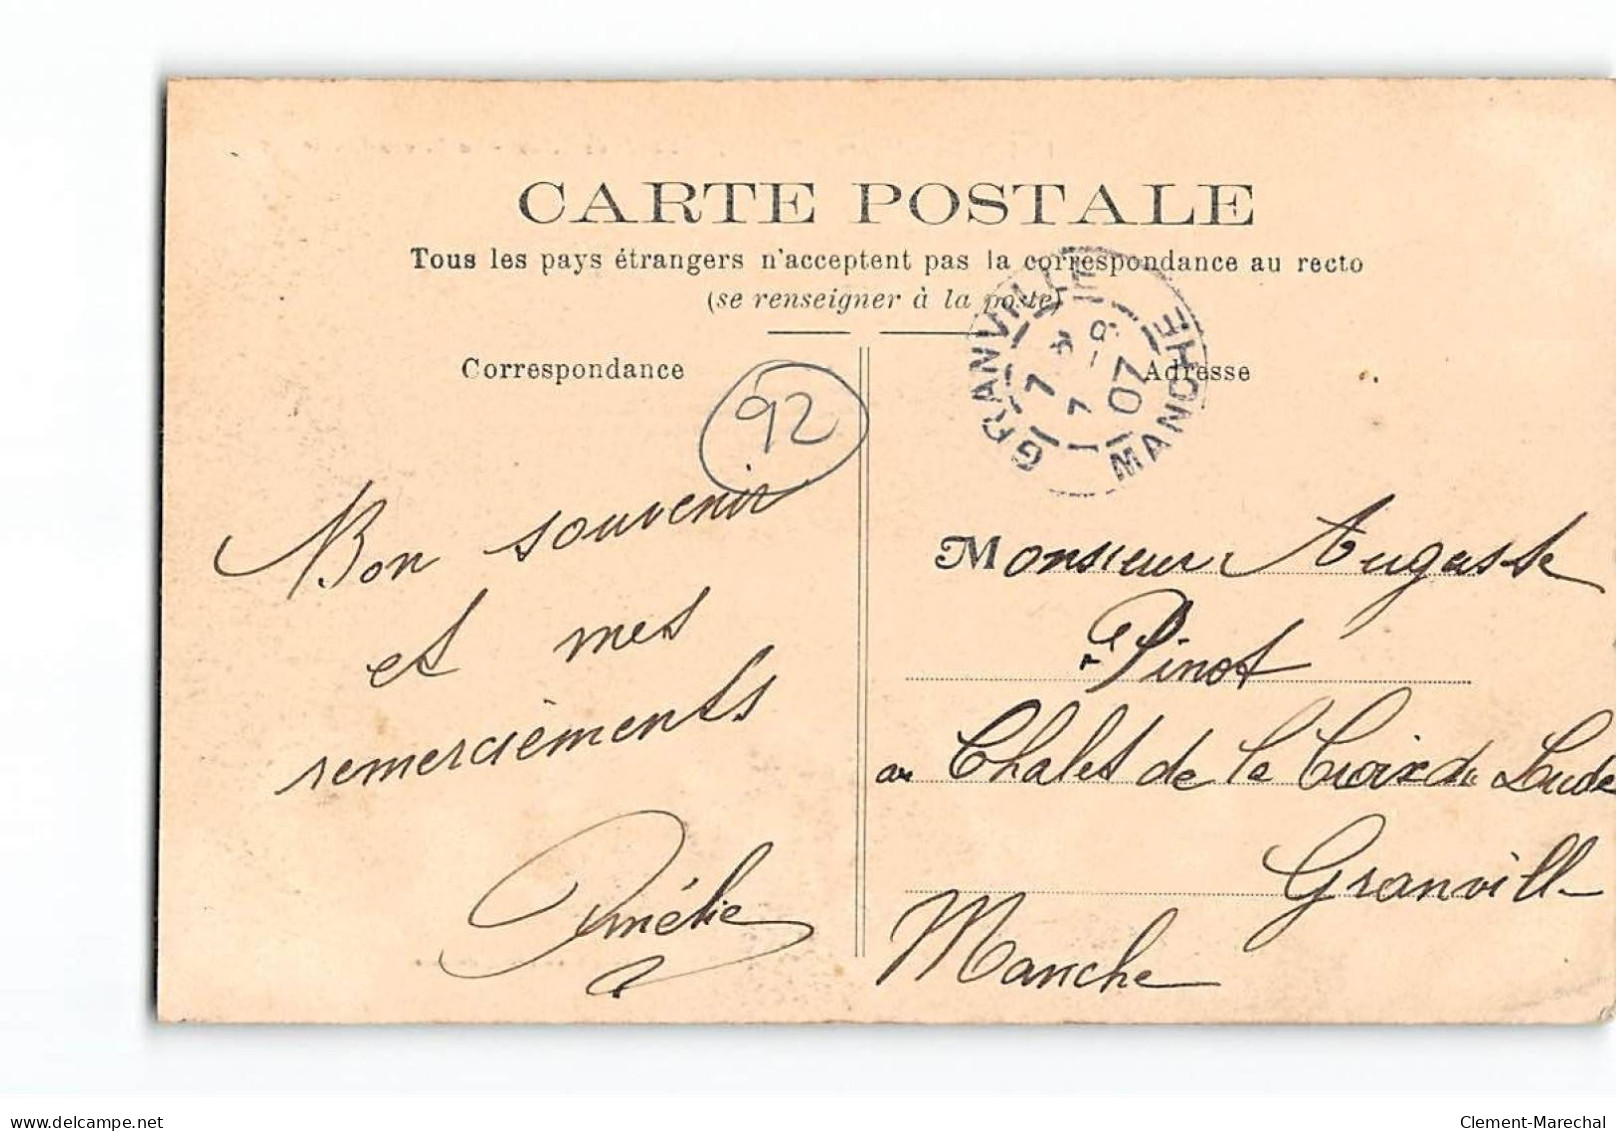 CARTE POSTALE
Tous les pays étrangers n'acceptent pas la correspondance au recto
(se renseigner à la poste)
Correspondance
Adresse
92
GRANVILLE
7
7
07
MANCHE
Bon souvenir
et mes
remerciements
Amélie
Monsieur Auguste
Pinot
au Chalet de la Croix du Lude
Granville
Manche
www.delcampe.net
Clement-Marechal